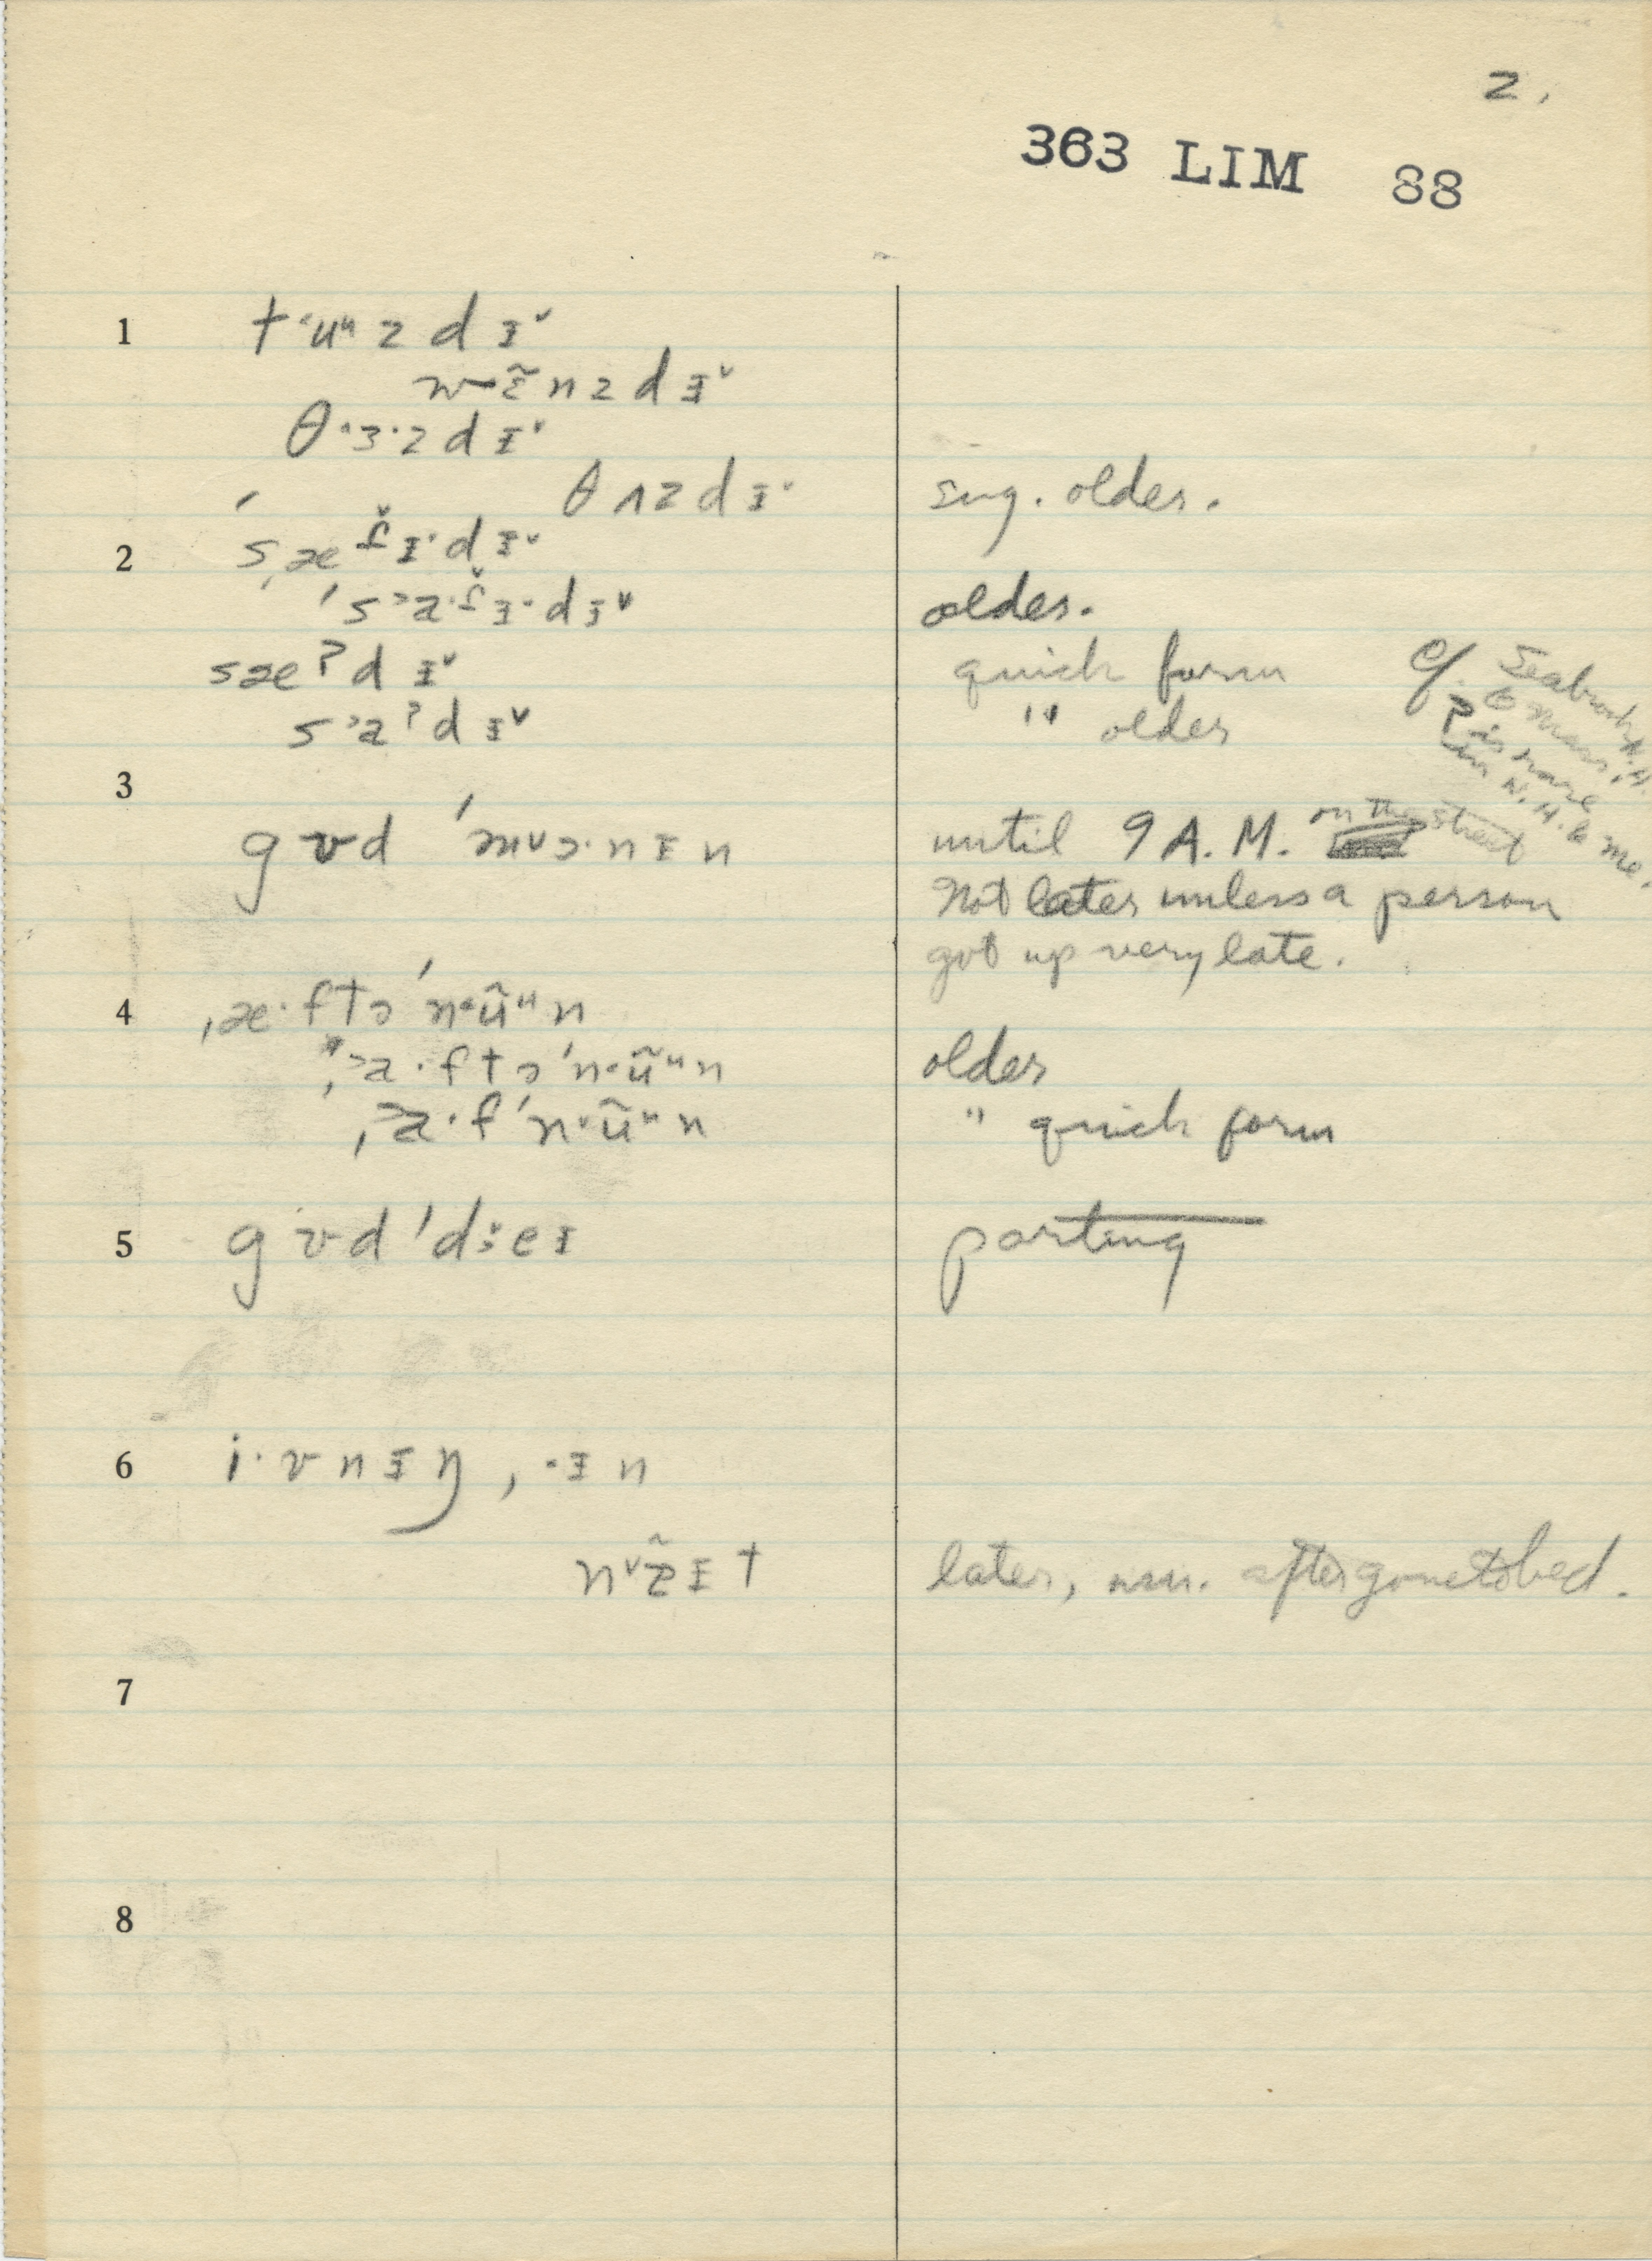 2.
363 LIM 88
1 tˑuᵘzdɪˇ
wɛ̃nzdɪˇ
θˑɜˑzdɪˇ
θʌzdɪˑ sug. older.
2 ˈs,æɪˑdɪˇ
ˈs˃aˑɪˑdɪˇ older.
sæʔdɪˇ quick form
s˃aʔdɪˇ " older
cf. Seabrook N.H.
& Mass.
ʔ is rare
in N.H. & Me.
3
gʊd ˈmᴗɔˑnɪn until 9 A.M. on the street
Not later unless a person
got up very late.
4 ˌæˑftəˈnˑũᵘn
ˌ˃aˑftəˈnˑũᵘn older
ˌ˃aˑfˈnˑũᵘn " quick form
5 gʊd ˈdːeɪ parting
6 iˑvnɪŋ, ˑɪn
nᵛãɪt later, usu. after gone to bed.
7
8